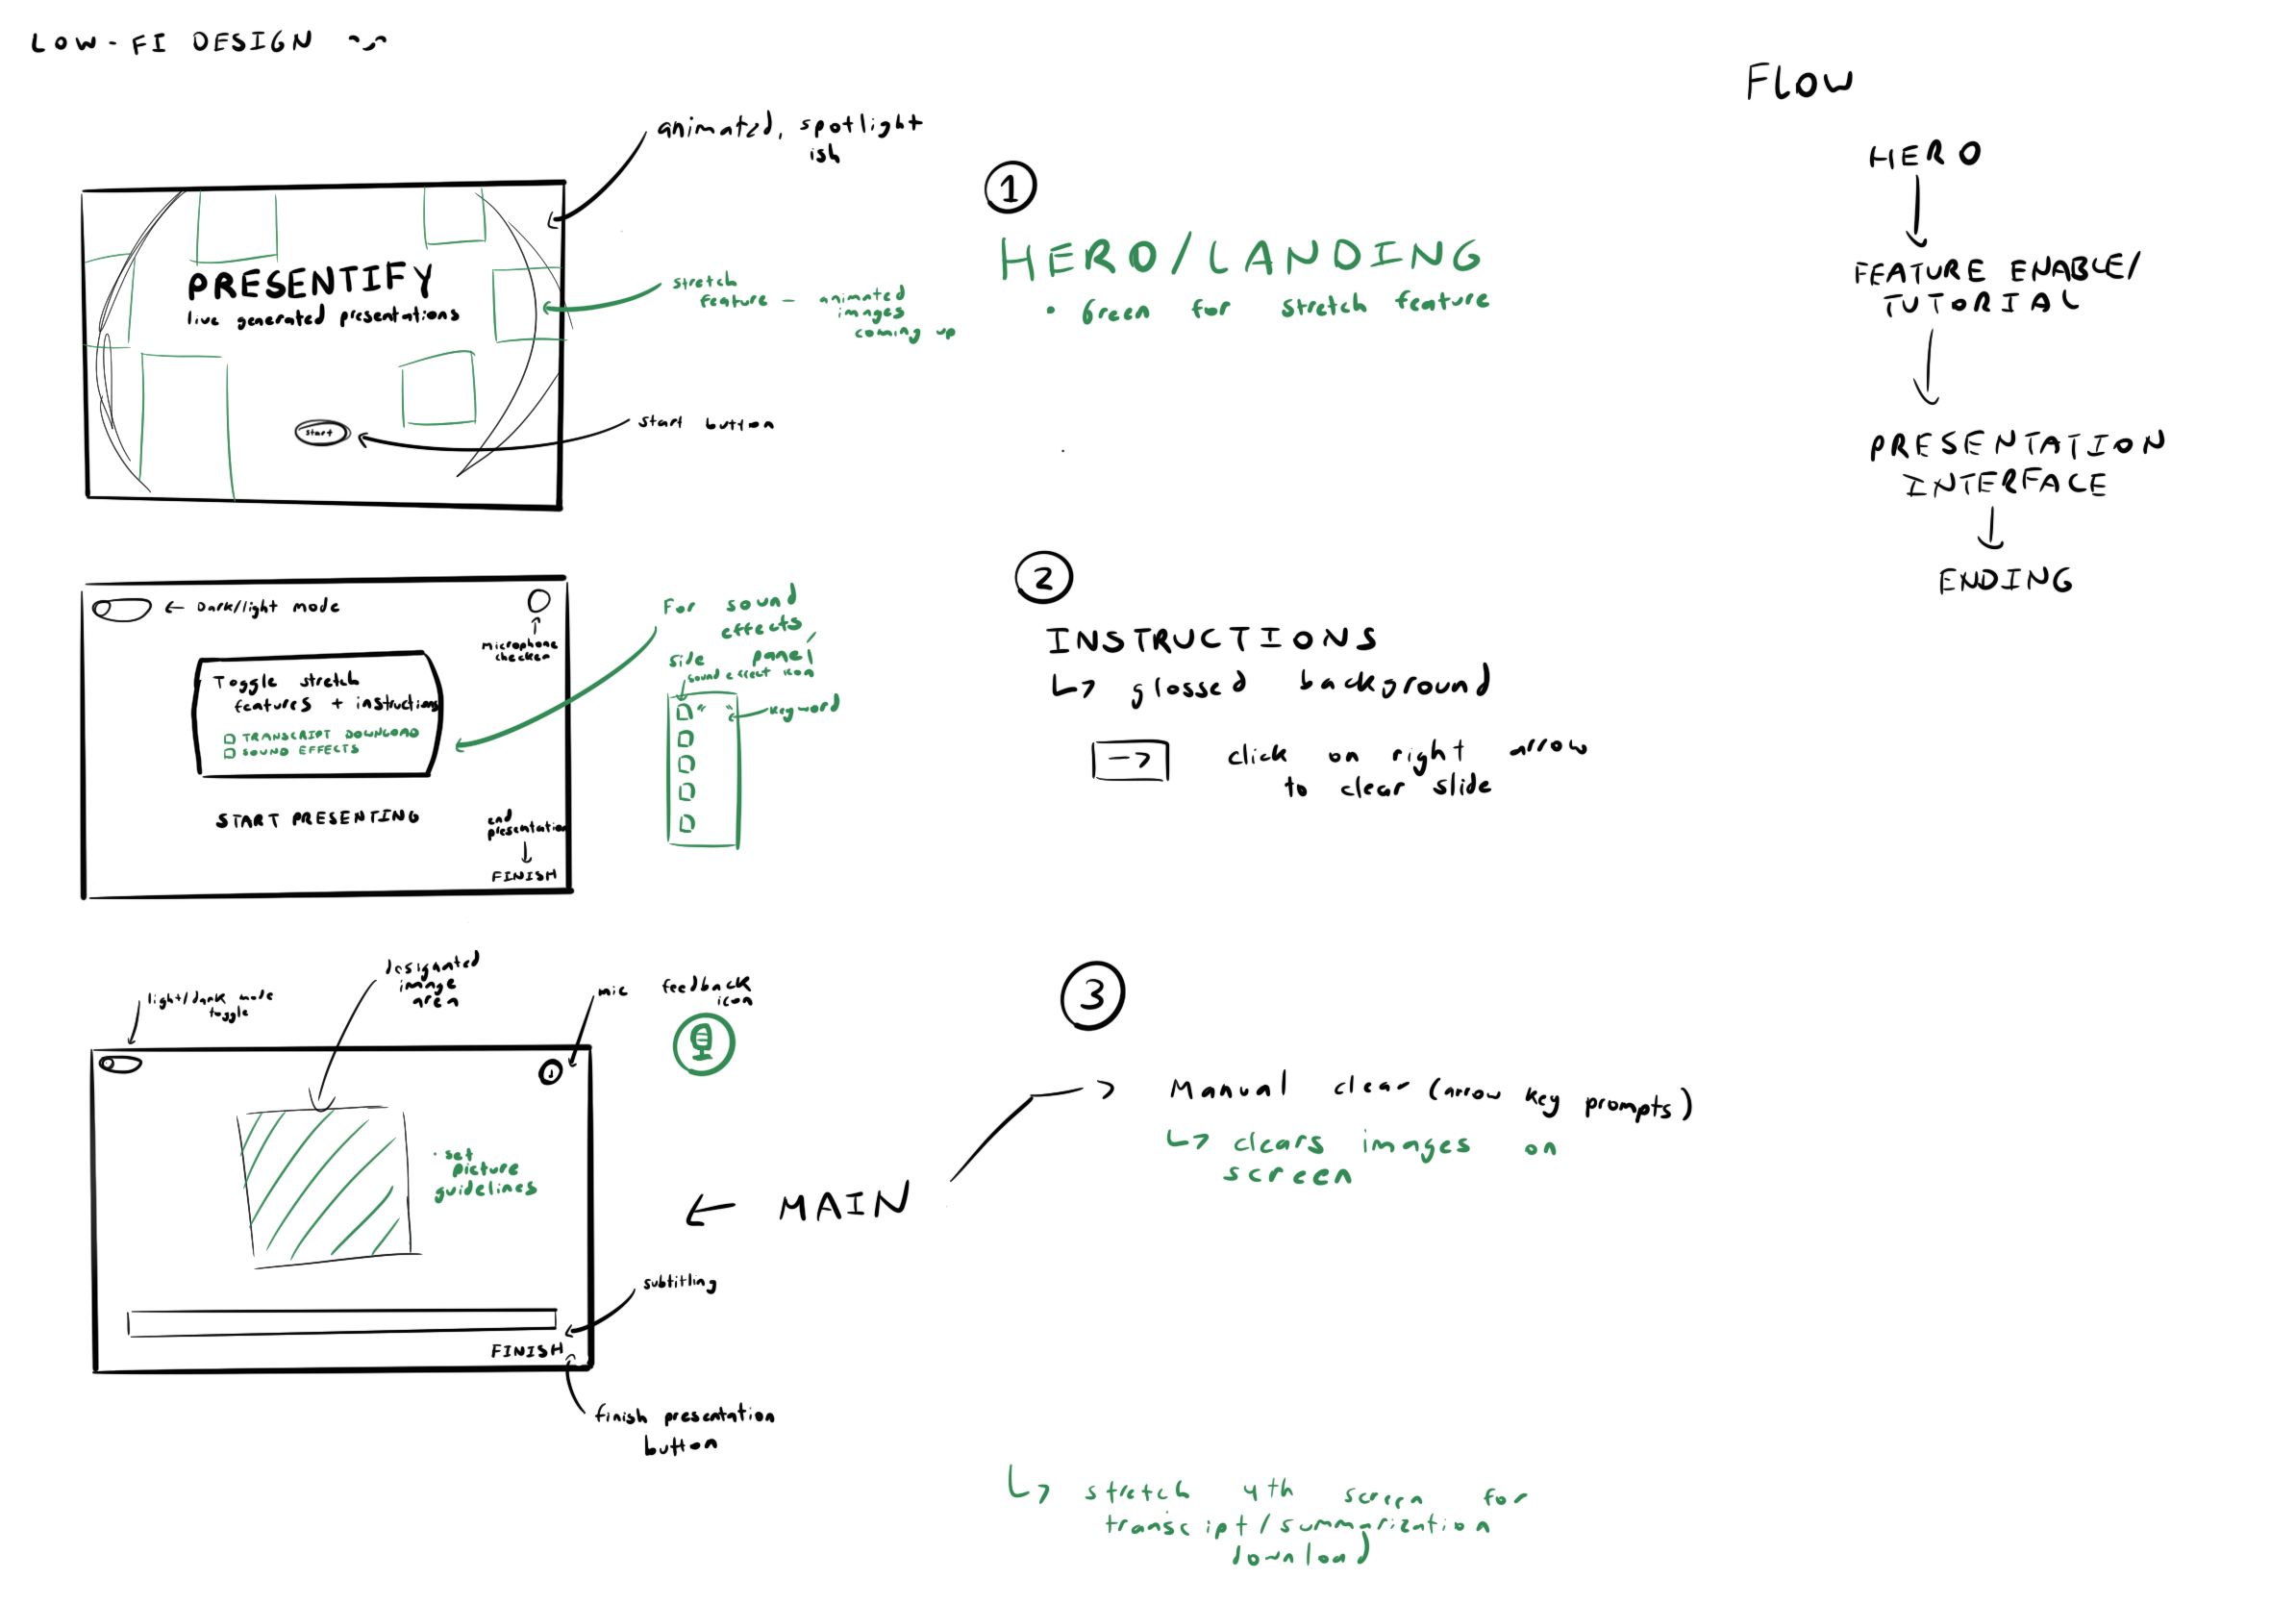 LOW-FI DESIGN
animated, spotlight
ish
PRESENTIFY
live generated presentations
start
stretch
feature - animated
images
coming up
start button
1
HERO/LANDING
• Green for stretch feature
Flow
HERO
FEATURE ENABLE/
TUTORIAL
PRESENTATION
INTERFACE
ENDING
← Dark/light mode
microphone
checker
Toggle stretch
features + instructions
TRANSCRIPT DOWNLOAD
SOUND EFFECTS
START PRESENTING
end
presentation
FINISH
For sound
effects,
side panel
sound effect icon
" "
keyword
2
INSTRUCTIONS
↳ glossed background
→ click on right arrow
to clear slide
light/dark mode
toggle
designated
image
area
mic feedback
icon
• set
picture
guidelines
subtitling
FINISH
finish presentation
button
← MAIN
3
Manual clear (arrow key prompts)
↳ clears images on
screen
↳ stretch 4th screen for
transcipt/summarization
download